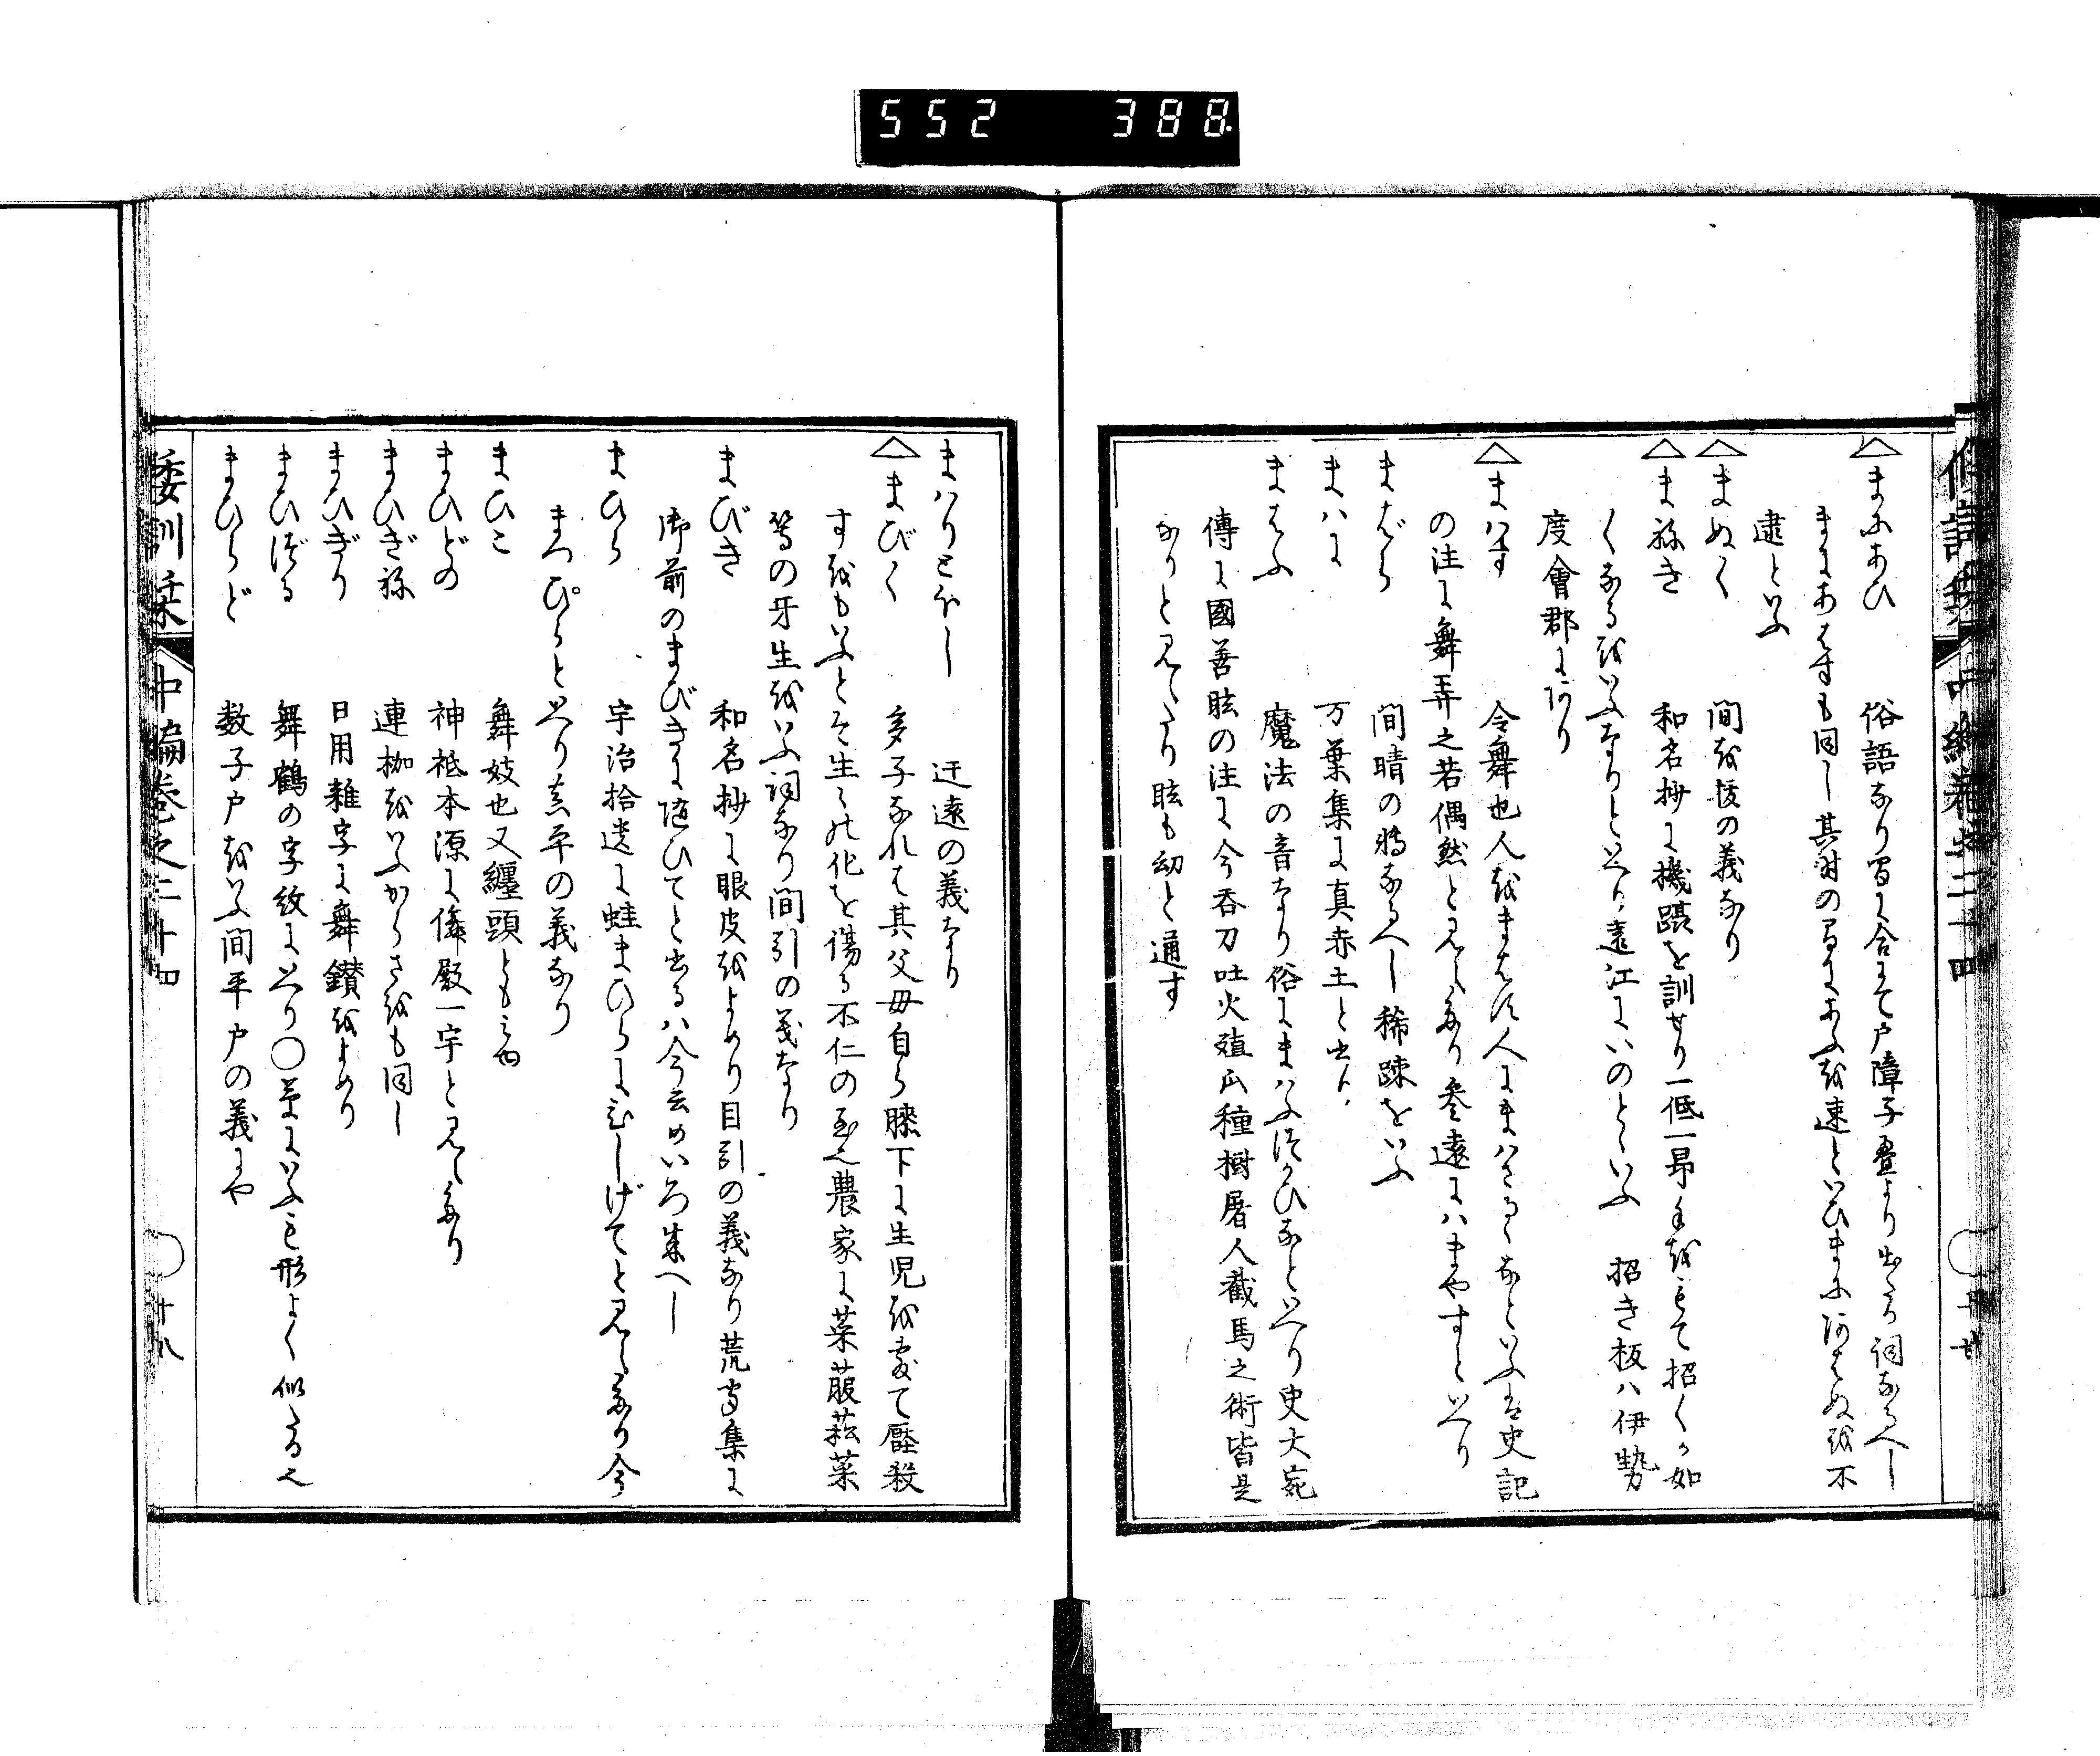 552 388
△まにあひ 俗語なり間に合せて戸障子畳より出たる詞なるへし
まにあはすも同し其時の間にあふを速といひまにあはぬを不
逮といふ
△まぬく 間を抜の義なり
△まねき 和名抄に機躡を訓せり一低一昂手をもて招くか如
くなるをいふなりといへり遠江にいのとゝいふ 招き板ハ伊勢
度會郡にあり
△まはす 令舞也人をまはす人にまハさるゝなといふ是史記
の注に舞弄之若偶然と見えたり参遠にハまやすといへり
まばら 間晴の轉なるへし稀踈をいふ
まハに 万葉集に真赤土と出たり
まはふ 魔法の音なり俗にまはふつかひなといへり史大宛
傳に國善眩の注に今呑刀吐火殖瓜種樹屠人截馬之術皆是
なりと見えたり眩も幻と通す
まハりどほし 迂遠の義なり
△まびく 多子なれは其父母自ら膝下に生児を敷て壓殺
すをもいふとそ生々の化を傷る不仁の至也農家に菜菔菘菜
等の牙生をいふ詞なり間引の義なり
まびき 和名抄に眼皮をよめり目引の義なり荒中集に
御前のまびきに随ひてと出るハ今云めいろ成へし
まひら 宇治拾遺に蛙まひらにひしげてと見えたり今
まつぴらといへり真平の義なり
まひこ 舞妓也又纏頭ともかけり
まひどの 神祇本源に儛殿一宇と見えたり
まひぎね 連枷をいふからさをも同し
まひぎり 日用雜字に舞鑚をよめり
まひづる 舞鶴の字紋にいへり〇草にいふも形よく似たる也
まひらど 数子戸をいふ間平戸の義にや
倭訓栞 中編巻之二十四 〇 十八